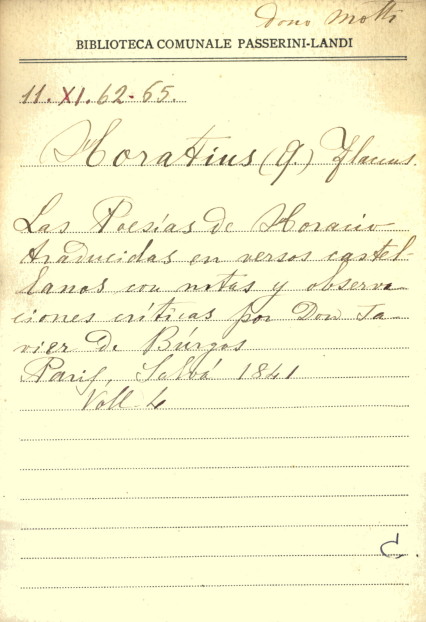 Dono Motti
BIBLIOTECA COMUNALE PASSERINI-LANDI
11. XI. 62-65.
Horatius (Q.) Flaccus.
Las Poesías de Horacio
traducidas en versos castel-
lanos con notas y observa
ciones críticas por Don Ja-
vier de Búrgos
Parig, Salvá 1841
Voll. 4
C.